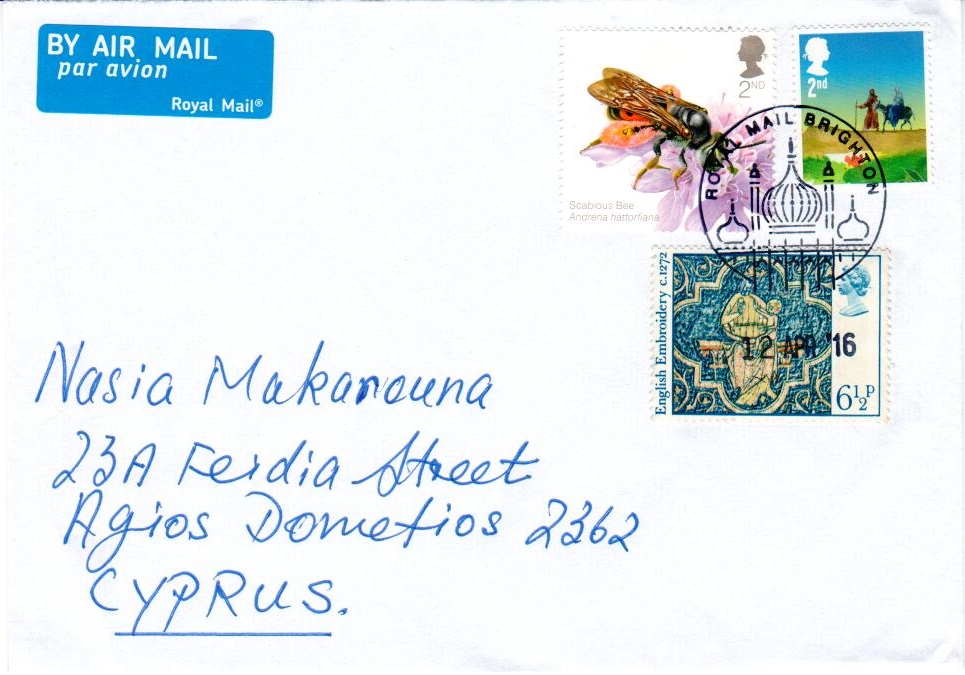 BY AIR MAIL
par avion
Royal Mail®
2ND
Scabious Bee
Andrena hattorfiana
2nd
ROYAL MAIL BRIGHTON
English Embroidery c.1272
12 APR '16
6½P
Nasia Makarouna
23A Feidia Street
Agios Dometios 2362
CYPRUS.